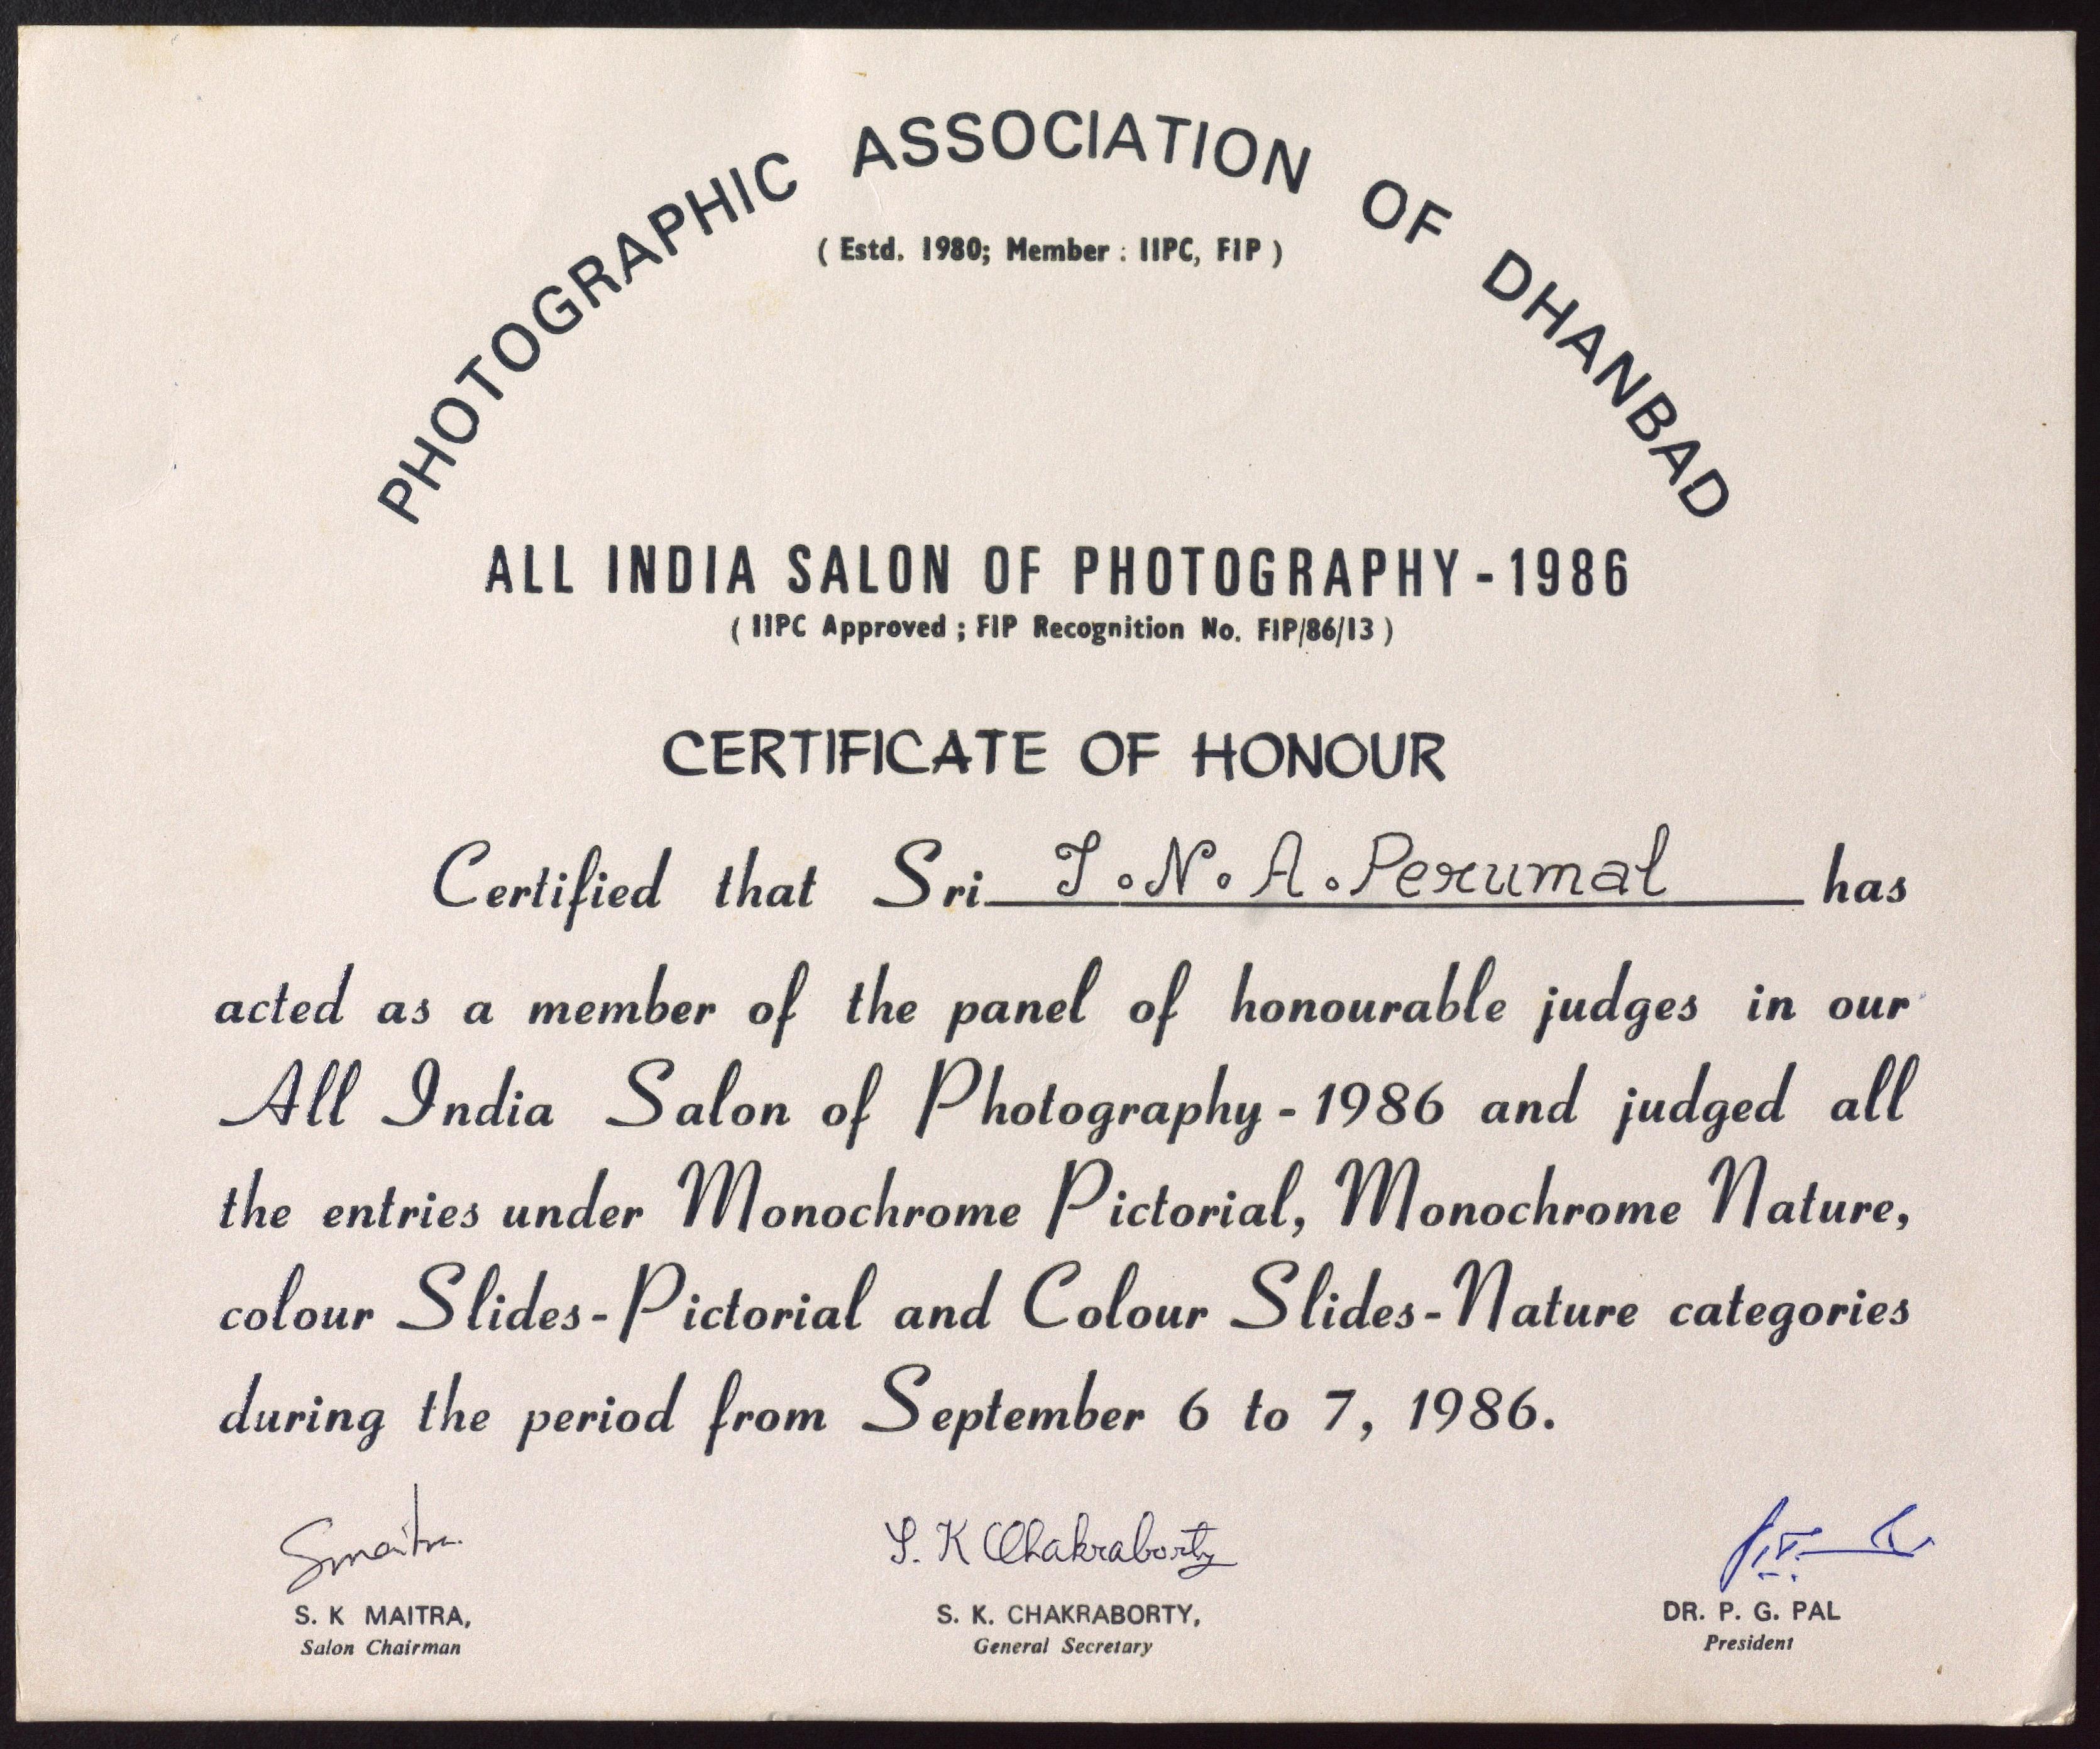 PHOTOGRAPHIC ASSOCIATION OF DHANBAD
( Estd. 1980; Member : IIPC, FIP )
ALL INDIA SALON OF PHOTOGRAPHY - 1986
( IIPC Approved ; FIP Recognition No. FIP/86/13 )
CERTIFICATE OF HONOUR
Certified that Sri T.N.A.Perumal has
acted as a member of the panel of honourable judges in our
All India Salon of Photography - 1986 and judged all
the entries under Monochrome Pictorial, Monochrome Nature,
colour Slides-Pictorial and Colour Slides-Nature categories
during the period from September 6 to 7, 1986.
Smaitra
S. K Chakraborty
S. K MAITRA,
Salon Chairman
S. K. CHAKRABORTY,
General Secretary
DR. P. G. PAL
President